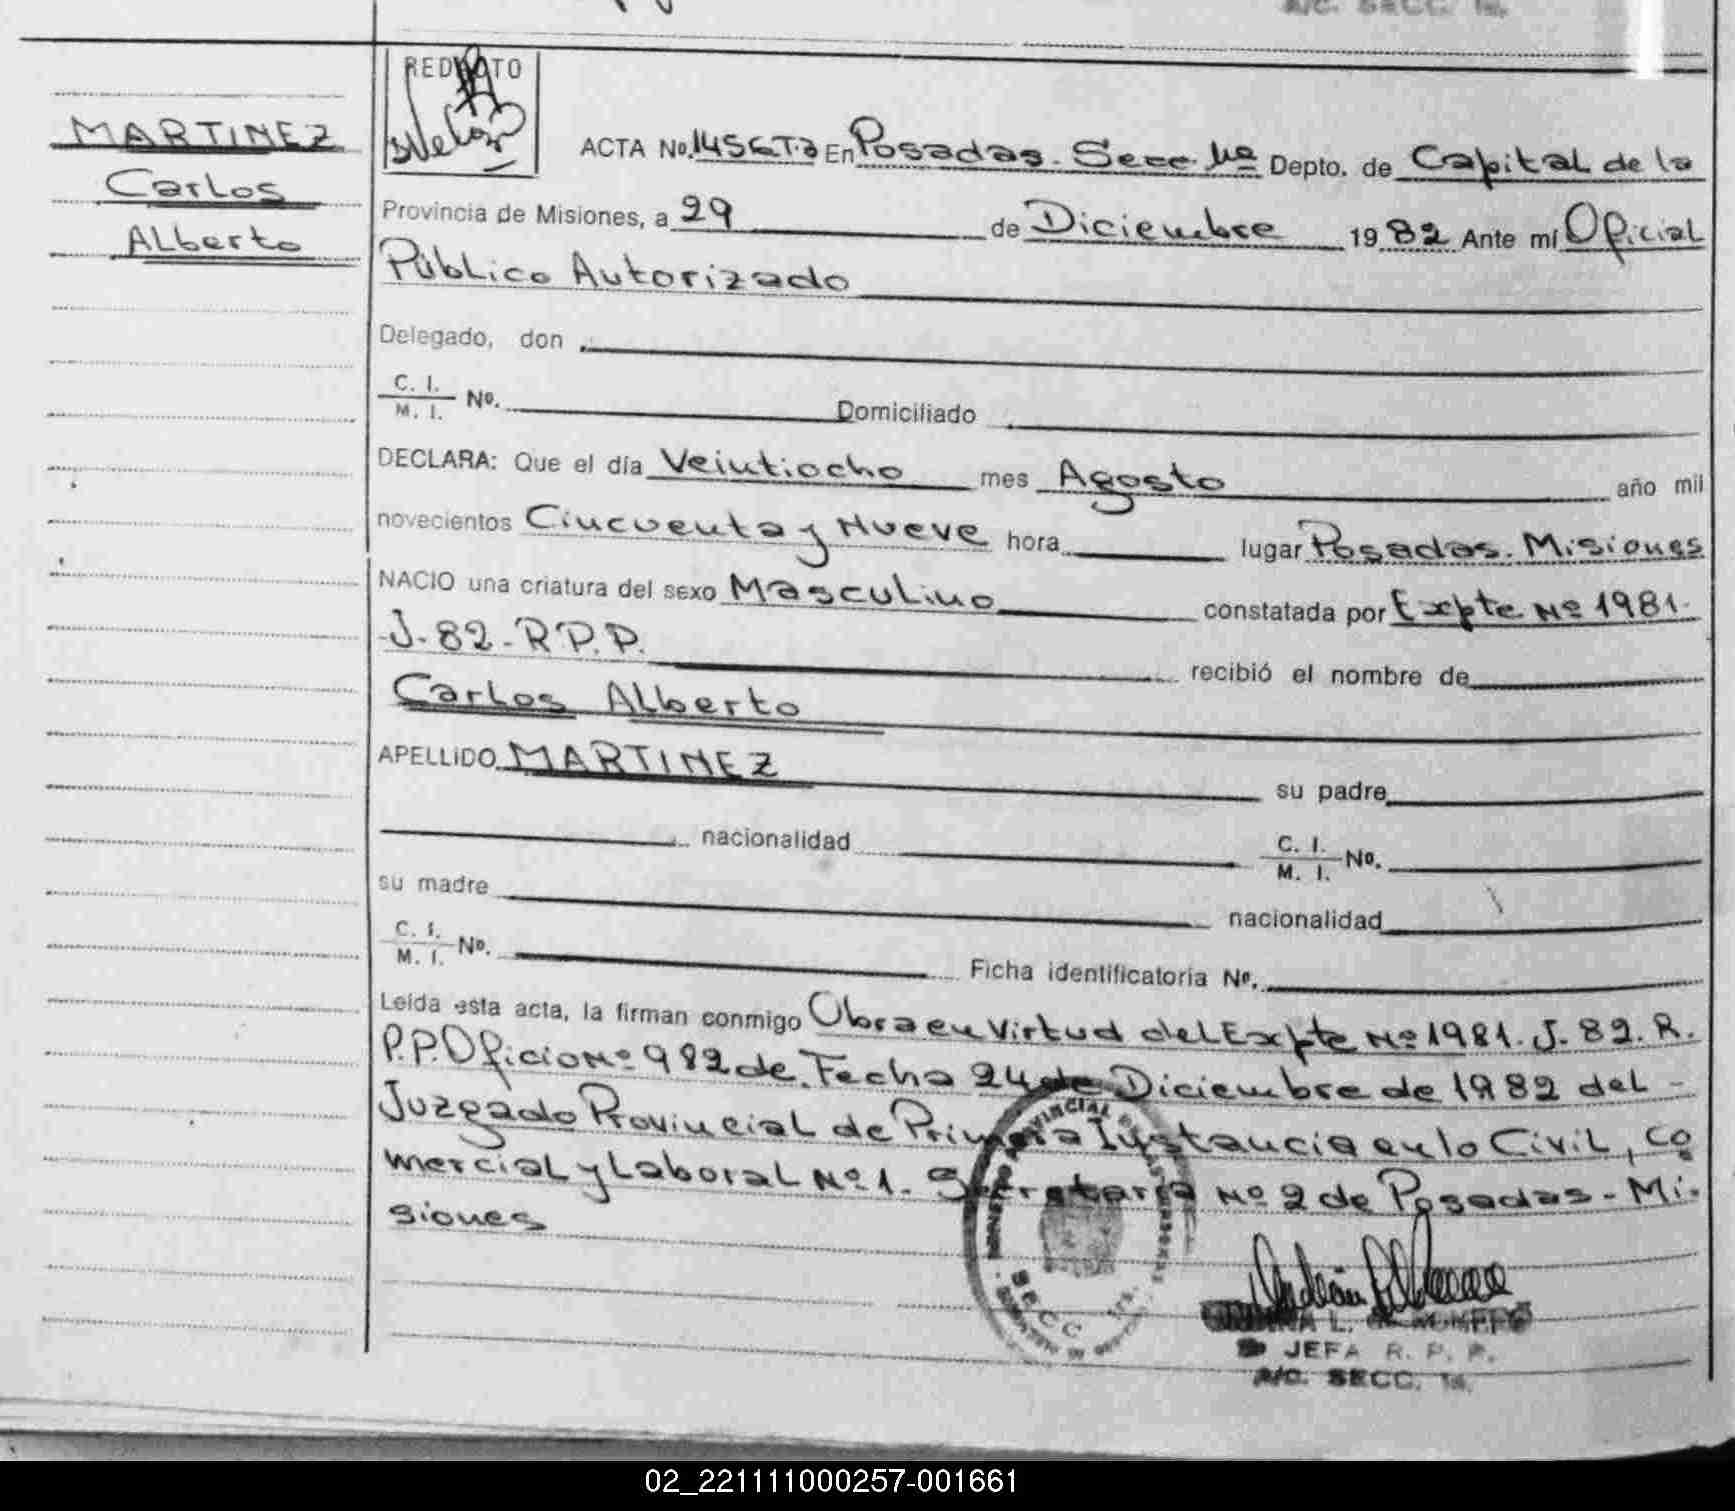 A/C. SECC. 1a.
MARTINEZ
Carlos
Alberto
REDACTO
ACTA No. 145 En Posadas. Secc 1a Depto. de Capital de la
Provincia de Misiones, a 29 de Diciembre 1982 Ante mí Oficial
Público Autorizado
Delegado, don
C. I.
M. I. No. Domiciliado
DECLARA: Que el día Veintiocho mes Agosto año mil
novecientos Cincuenta y Nueve hora lugar Posadas. Misiones
NACIO una criatura del sexo Masculino constatada por Expte Nº 1981.
J. 82 - R.P.P. recibió el nombre de
Carlos Alberto
APELLIDO MARTINEZ su padre
nacionalidad C. I.
M. I. No.
su madre nacionalidad
C. I.
M. I. No. Ficha identificatoria No.
Leída esta acta, la firman conmigo Obra en Virtud del Expte Nº 1981. J. 82. R.
P.P. Oficio Nº 982 de Fecha 24 de Diciembre de 1982 del -
Juzgado Provincial de Primera Instancia en lo Civil, Co
mercial y Laboral Nº 1. Secretaria Nº 2 de Posadas - Mi-
siones
PROVINCIAL
SECC. 1ra.
JEFA R. P. P.
A/C. SECC. 1a.
02_221111000257-001661